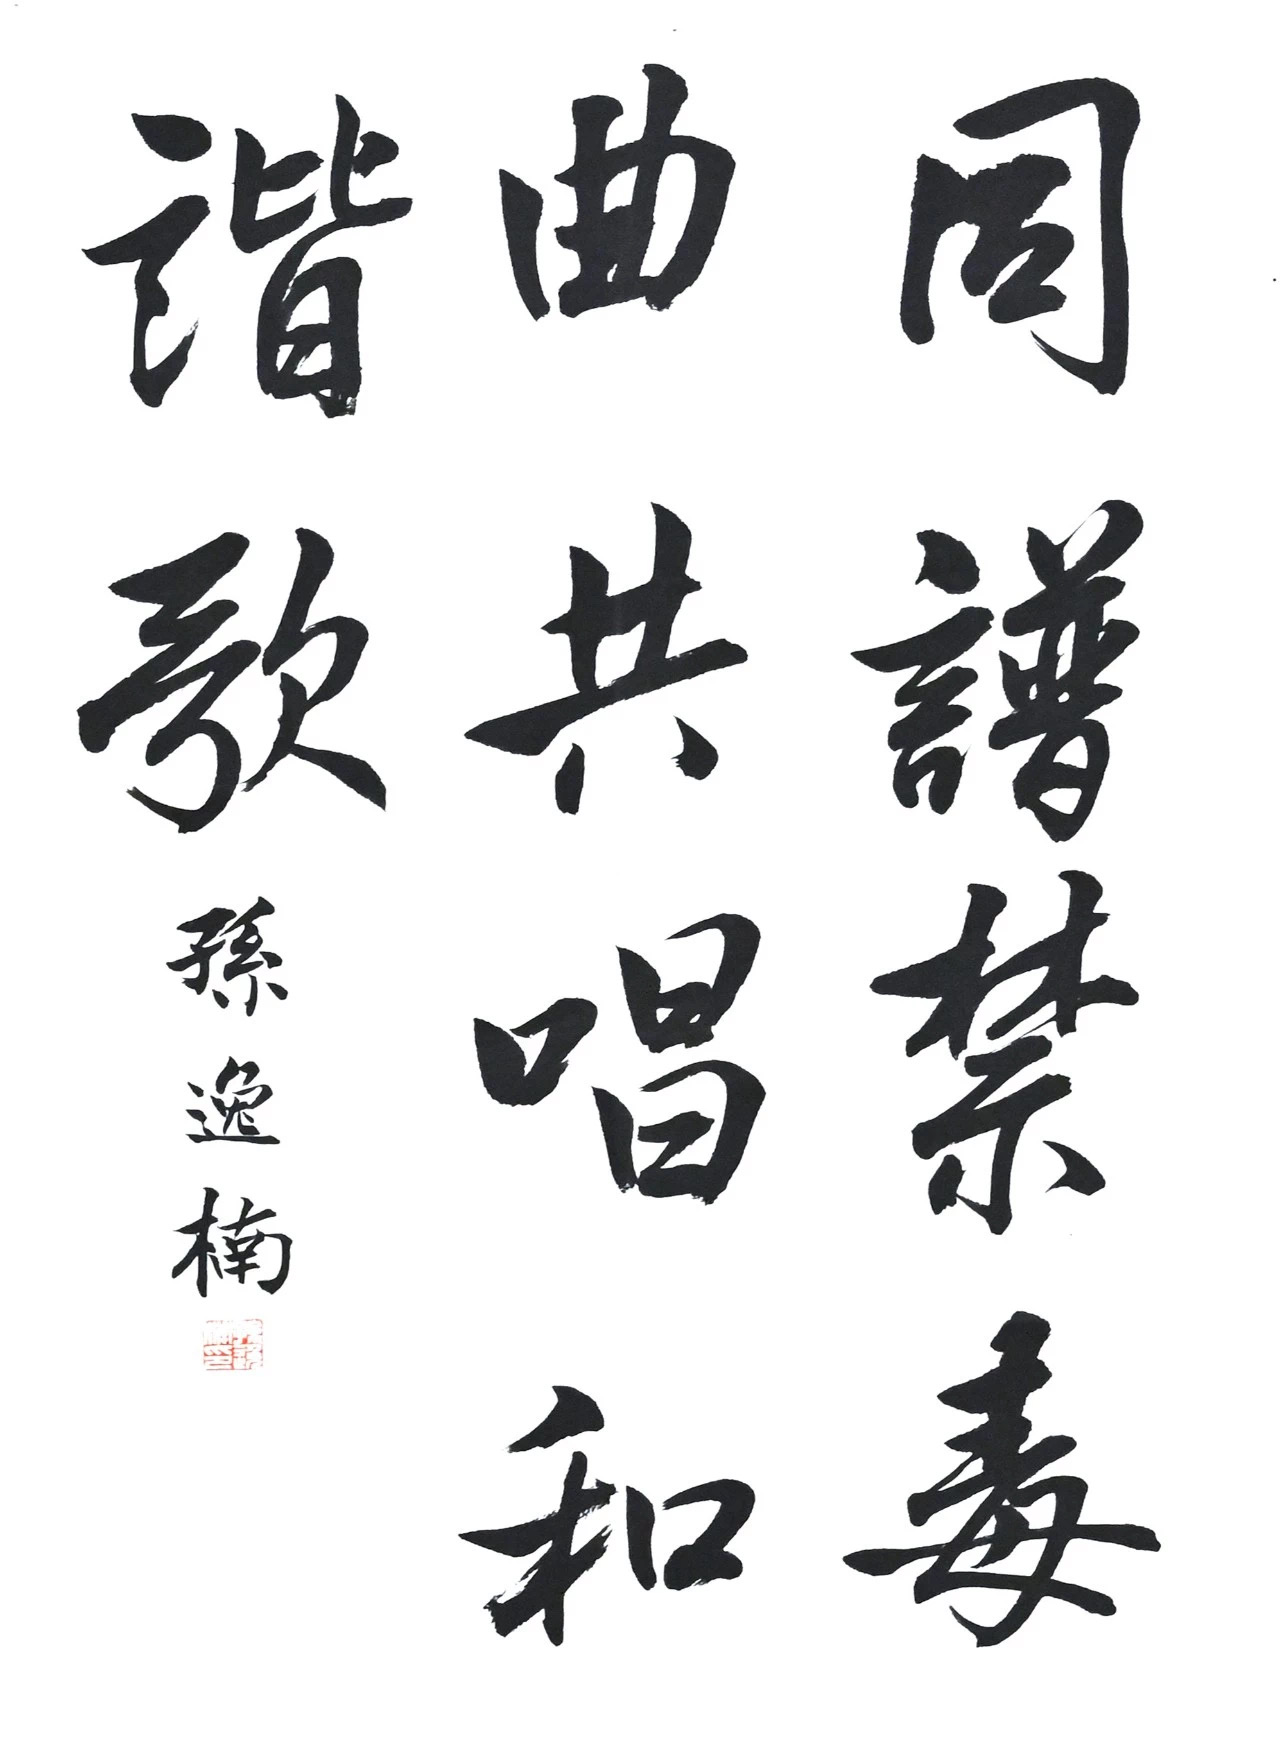 同譜禁毒
曲共唱和
諧歌
孫逸楠